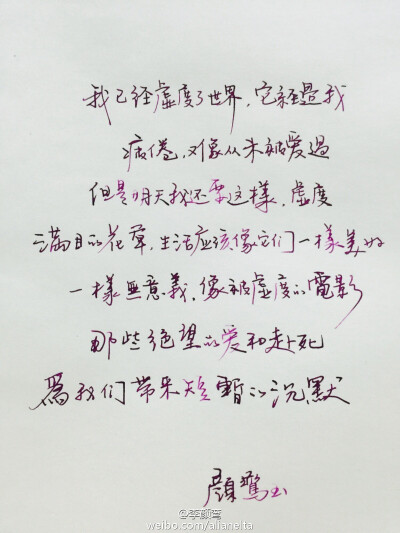 我已经虚度了世界，它經過我
疲倦，又像从未被爱過
但是明天我还要这樣，虚度
滿目的花草，生活应该像它们一樣美好
一樣無意義，像被虚度的電影
那些绝望的爱和赴死
為我们带来短暫的沉默
顏
weibo.com/allaneita